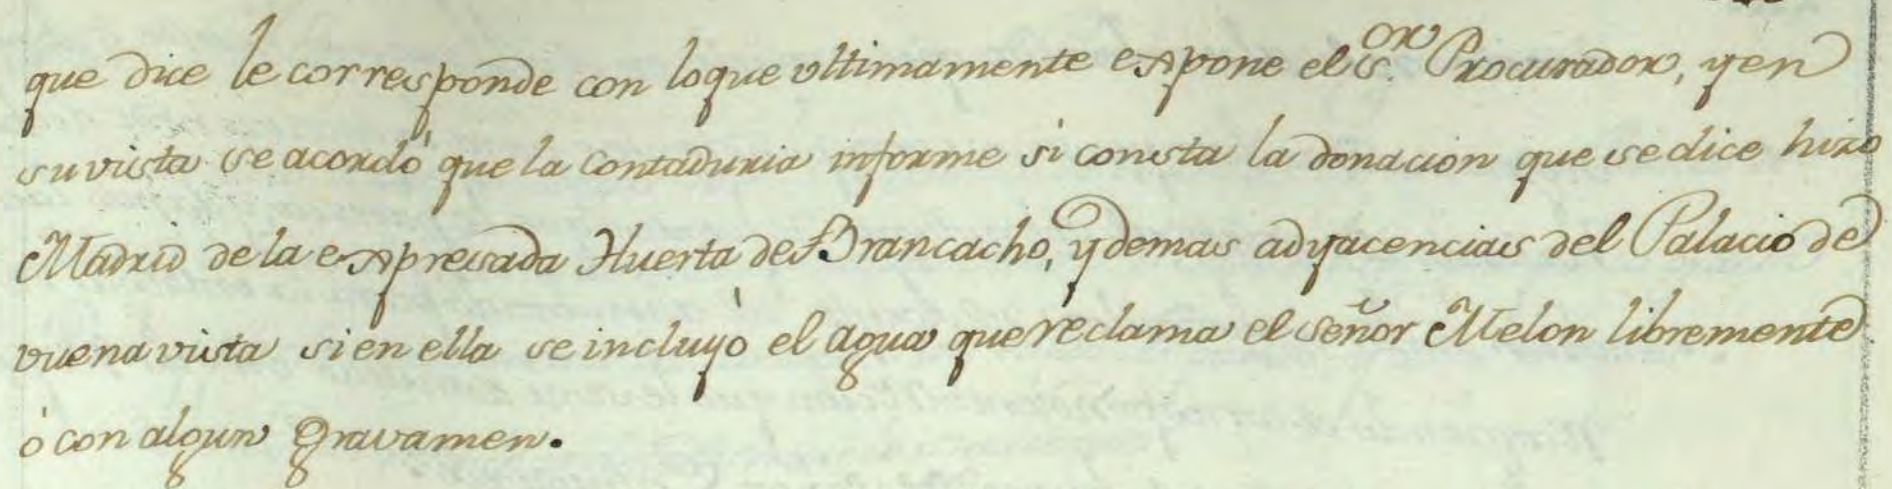 que dice le corresponde con lo que ultimamente expone el S.or Procurador, y en
su vista se acordó que la Contaduria informe si consta la donacion que se dice hizo
Madrid de la expresada Huerta de Brancacho, y demas adyacencias del Palacio de
buena vista si en ella se incluyó el agua que reclama el señor Melon libremente
ó con algun gravamen.